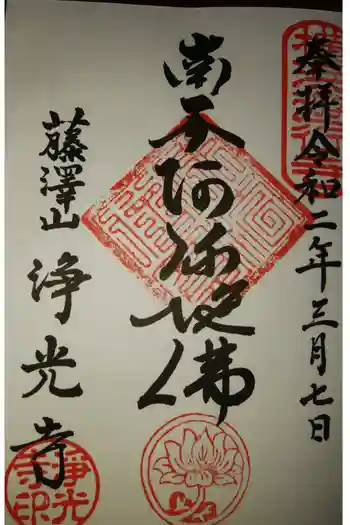 奉拝令和二年三月七日
南无阿弥陀佛
藤澤山
浄光寺
浄光
寺印